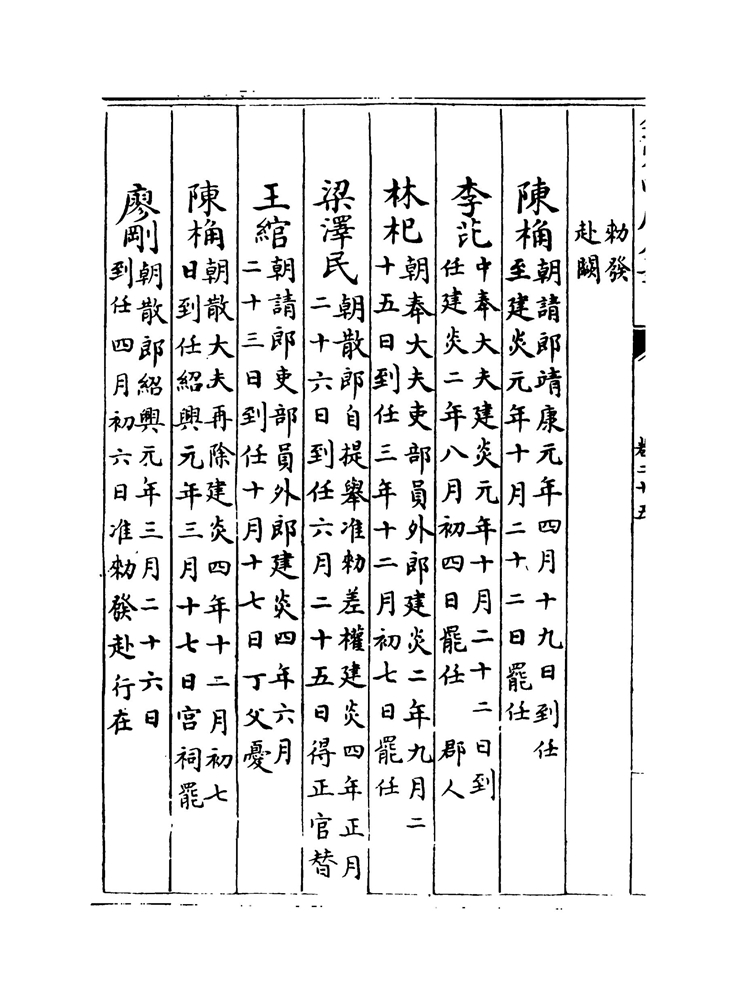 勑發
赴闕
陳桷
朝請郎靖康元年四月十九日到任
至建炎元年十月二十二日罷任
李芘
中奉大夫建炎元年十月二十二日到
任建炎二年八月初四日罷任 郡人
林杞
朝奉大夫吏部員外郎建炎二年九月二
十五日到任三年十二月初七日罷任
梁澤民
朝散郎自提舉准勑差權建炎四年正月
二十六日到任六月二十五日得正官替
王綰
朝請郎吏部員外郎建炎四年六月
二十三日到任十月十七日丁父憂
陳桷
朝散大夫再除建炎四年十二月初七
日到任紹興元年三月十七日宮祠罷
廖剛
朝散郎紹興元年三月二十六日
到任四月初六日准勑發赴行在
卷二十五